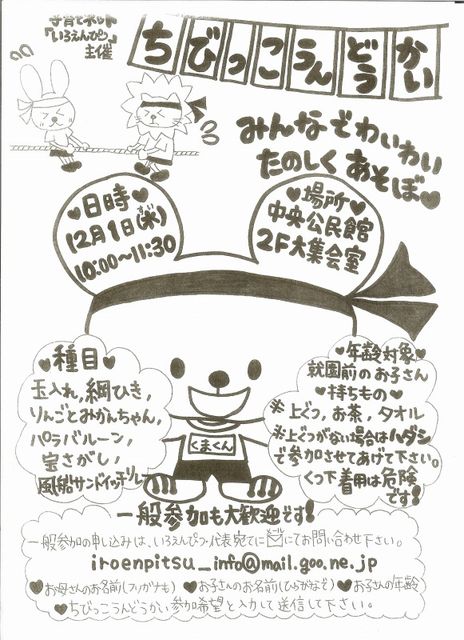 子育てネット
『いろえんぴつ』
主催
ちびっこうんどうかい
みんなでわいわい
たのしくあそぼ♥
♥日時♥
12月1日(水)
10:00〜11:30
♥場所♥
中央公民館
2F大集会室
♥種目♥
玉入れ,綱ひき,
りんごとみかんちゃん,
パラバルーン,
宝さがし,
風船サンドイッチリレー
♥年齢対象♥
就園前のお子さん
♥持ちもの♥
※上ぐつ,お茶,タオル
※上ぐつがない場合はハダシ
で参加させてあげて下さい。
くつ下着用は危険
です!
くまくん
一般参加も大歓迎です!
一般参加の申し込みは、いろえんぴつ代表宛てに✉にてお問い合わせ下さい。
iroenpitsu_info@mail.goo.ne.jp
♥お母さんのお名前(フリガナも) ♥お子さんのお名前(ひらがなで) ♥お子さんの年齢
ちびっこうんどうかい参加希望と入力して送信して下さい。